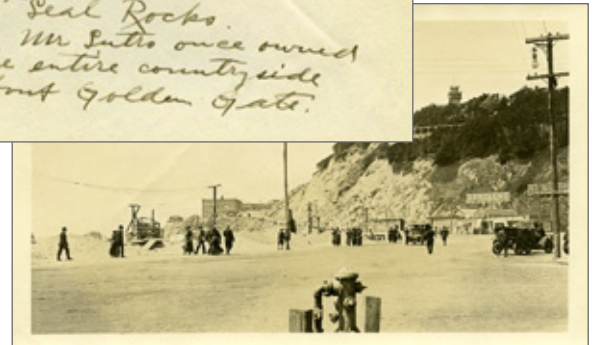 Seal Rocks.
Mr Sutro once owned
e entire countryside
Golden Gate.